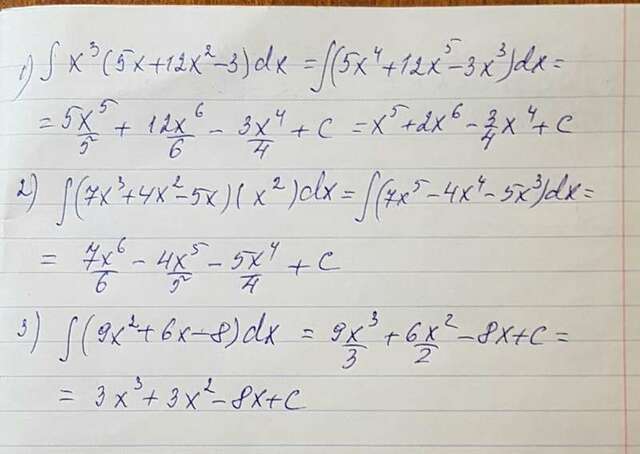 1) ∫ x³(5x+12x²-3)dx = ∫(5x⁴+12x⁵-3x³)dx=
= 5x⁵/5 + 12x⁶/6 - 3x⁴/4 + C = x⁵+2x⁶-3/4 x⁴+C
2) ∫(7x³+4x²-5x)(x²)dx=∫(7x⁵-4x⁴-5x³)dx=
= 7x⁶/6 - 4x⁵/5 - 5x⁴/4 + C
3) ∫(9x²+6x-8)dx = 9x³/3 + 6x²/2 - 8x+C=
= 3x³+3x²-8x+C